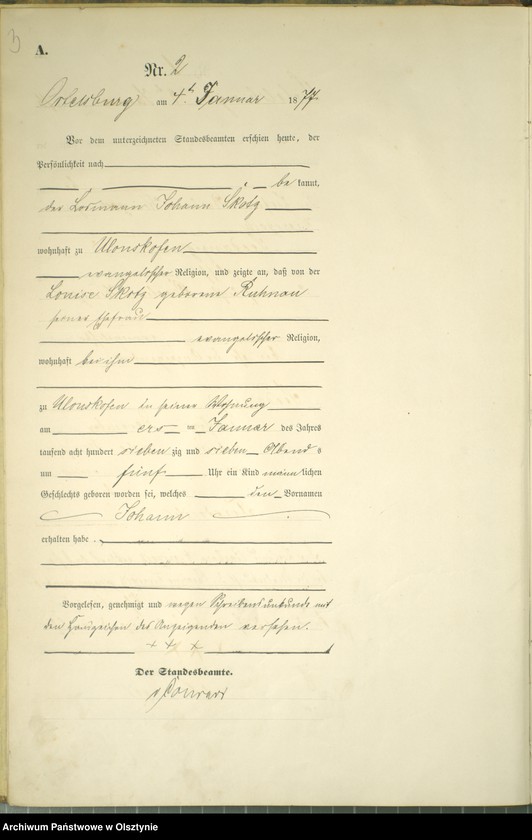 A.
Nr. 2
Ortelsburg am 4ten Januar 1877
Vor dem unterzeichneten Standesbeamten erschien heute, der
Persönlichkeit nach
bekannt,
der Losmann Johann Skotz
wohnhaft zu Ulonskofen
evangelischer Religion, und zeigte an, daß von der
Louise Skotz geborene Ruhnau
seiner Ehefrau
evangelischer Religion,
wohnhaft bei ihm
zu Ulonskofen in seiner Wohnung
am ers ten Januar des Jahres
tausend acht hundert sieben zig und sieben Abends
um fünf Uhr ein Kind männlichen
Geschlechts geboren worden sei, welches den Vornamen
Johann
erhalten habe.
Vorgelesen, genehmigt und wegen Schreibensunkunde mit
den Handzeichen des Anzeigenden versehen.
+ + +
Der Standesbeamte.
Archiwum Państwowe w Olsztynie